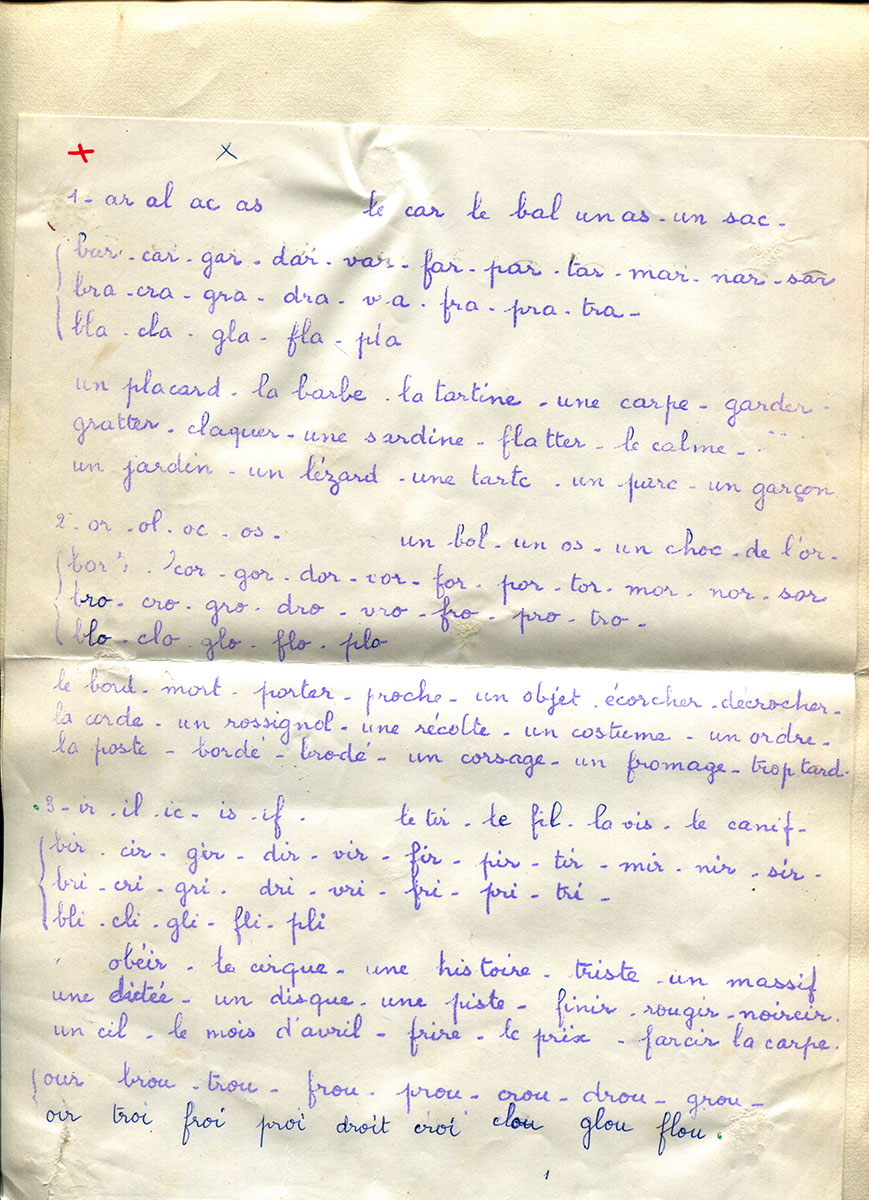 1- ar al ac as le car le bal un as - un sac -
bar - car - gar - dar - var - far - par - tar - mar - nar - sar
bra - cra - gra - dra - v a - fra - pra - tra -
bla - cla - gla - fla - pla
un placard - la barbe - la tartine - une carpe - garder -
gratter - claquer - une sardine - flatter - le calme -
un jardin - un lézard - une tarte - un parc - un garçon
2 - or - ol - oc - os - un bol - un os - un choc - de l'or -
bor - cor - gor - dor - vor - for - por - tor - mor - nor - sor
bro - cro - gro - dro - vro - fro - pro - tro -
blo - clo - glo - flo - plo
le bord - mort - porter - proche - un objet - écorcher - décrocher -
la corde - un rossignol - une récolte - un costume - un ordre -
la poste - bordé - brodé - un corsage - un fromage - trop tard -
3 - ir - il - ic - is - if - le tir - le fil - la vis - le canif -
bir - cir - gir - dir - vir - fir - pir - tir - mir - nir - sir -
bri - cri - gri - dri - vri - fri - pri - tri -
bli - cli - gli - fli - pli
obéir - le cirque - une histoire - triste - un massif
une dictée - un disque - une piste - finir - rougir - noircir.
un cil - le mois d'avril - frire - le prix - farcir la carpe.
our brou - trou - frou - prou - crou - drou - grou -
oir troi froi proi droit croi clou glou flou.
1